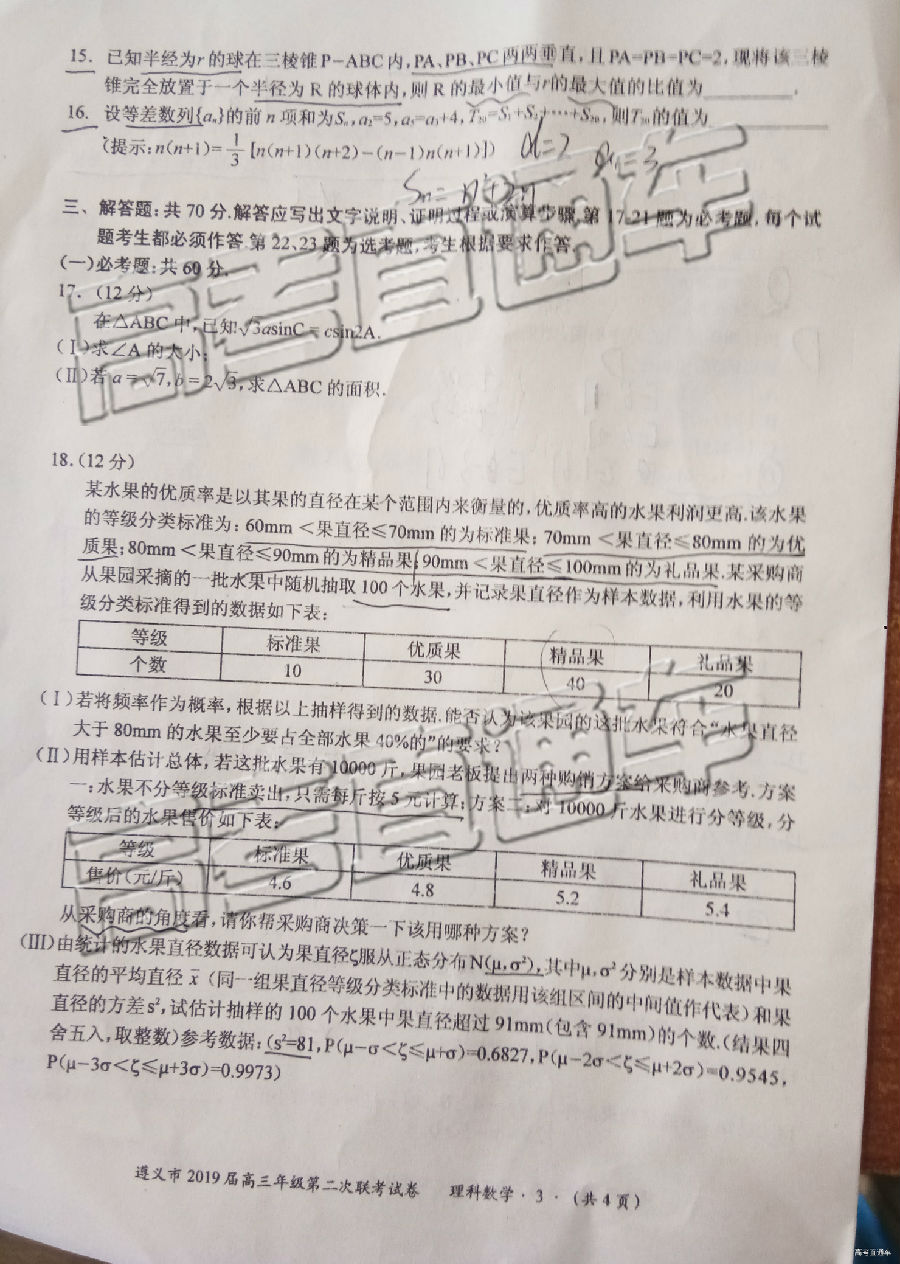 15. 已知半经为r的球在三棱锥P-ABC内,PA、PB、PC两两垂直,且PA=PB=PC=2,现将该三棱
锥完全放置于一个半径为R的球体内,则R的最小值与r的最大值的比值为________.
16. 设等差数列{aₙ}的前n项和为Sₙ,a₂=5,a₅=a₃+4,T₂₀=S₁+S₂+…+S₂₀,则T₂₀的值为________
(提示:n(n+1)=1/3[n(n+1)(n+2)-(n-1)n(n+1)]) d=2 a₁=3
Sn=n²+2n
三、解答题:共70分.解答应写出文字说明、证明过程或演算步骤.第17-21题为必考题,每个试
题考生都必须作答.第22、23题为选考题,考生根据要求作答.
(一)必考题:共60分.
17. (12分)
在△ABC中,已知√3asinC=csin2A.
(Ⅰ)求∠A的大小;
(Ⅱ)若a=√7,b=2√3,求△ABC的面积.
18.(12分)
某水果的优质率是以其果的直径在某个范围内来衡量的,优质率高的水果利润更高.该水果
的等级分类标准为:60mm<果直径≤70mm的为标准果;70mm<果直径≤80mm的为优
质果;80mm<果直径≤90mm的为精品果;90mm<果直径≤100mm的为礼品果.某采购商
从果园采摘的一批水果中随机抽取100个水果,并记录果直径作为样本数据,利用水果的等
级分类标准得到的数据如下表:
等级 标准果 优质果 精品果 礼品果
个数 10 30 40 20
(Ⅰ)若将频率作为概率,根据以上抽样得到的数据.能否认为该果园的这批水果符合“水果直径
大于80mm的水果至少要占全部水果40%的”的要求?
(Ⅱ)用样本估计总体,若这批水果有10000斤,果园老板提出两种购销方案给采购商参考.方案
一:水果不分等级标准卖出,只需每斤按5元计算;方案二:对10000斤水果进行分等级,分
等级后的水果售价如下表:
等级 标准果 优质果 精品果 礼品果
售价(元/斤) 4.6 4.8 5.2 5.4
从采购商的角度看,请你帮采购商决策一下该用哪种方案?
(Ⅲ)由统计的水果直径数据可认为果直径ζ服从正态分布N(μ,σ²),其中μ,σ²分别是样本数据中果
直径的平均直径x̄(同一组果直径等级分类标准中的数据用该组区间的中间值作代表)和果
直径的方差s²,试估计抽样的100个水果中果直径超过91mm(包含91mm)的个数.(结果四
舍五入,取整数)参考数据:(s²=81,P(μ-σ<ζ≤μ+σ)=0.6827,P(μ-2σ<ζ≤μ+2σ)=0.9545,
P(μ-3σ<ζ≤μ+3σ)=0.9973)
遵义市2019届高三年级第二次联考试卷 理科数学·3·(共4页)
高考直通车
高考直通车
高考直通车